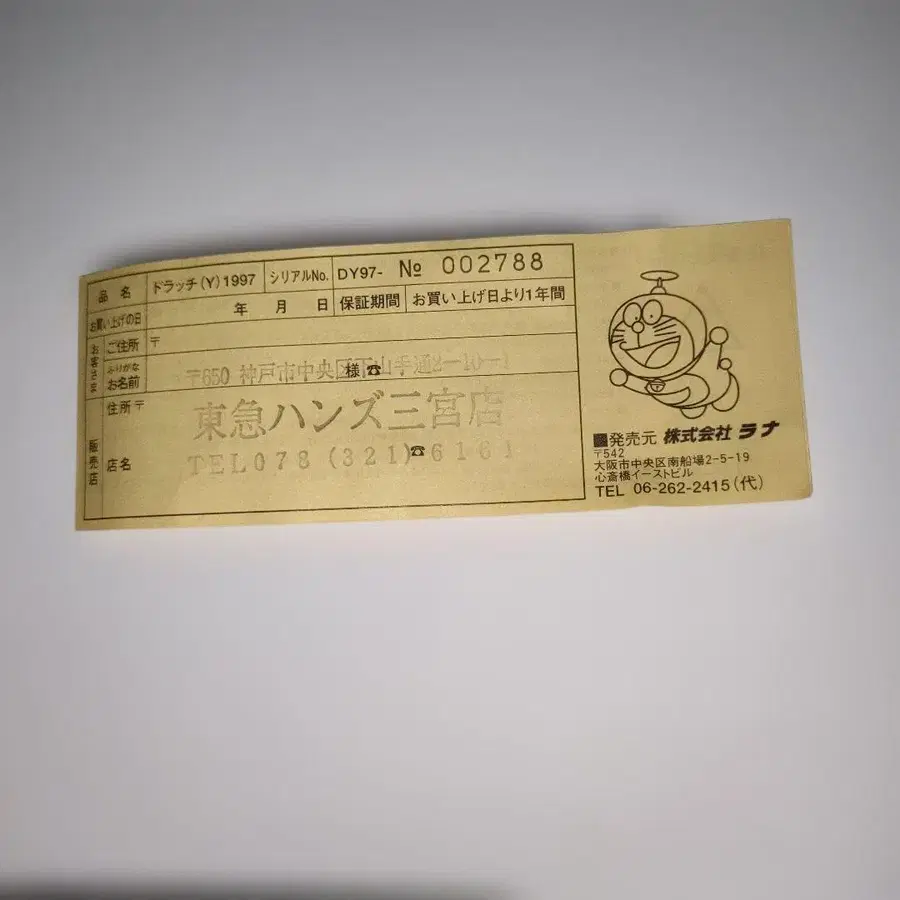 品名 ドラッチ(Y)1997 シリアルNo. DY97- № 002788
お買い上げの日 年 月 日 保証期間 お買い上げ日より1年間
お客さま ご住所 〒
ふりがな
お名前 様 ☎
〒650 神戸市中央区下山手通2-10-1
販売店 住所 〒
東急ハンズ三宮店
店名 ☎
TEL078(321)6161
■発売元 株式会社 ラナ
〒542
大阪市中央区南船場2-5-19
心斎橋イーストビル
TEL 06-262-2415(代)